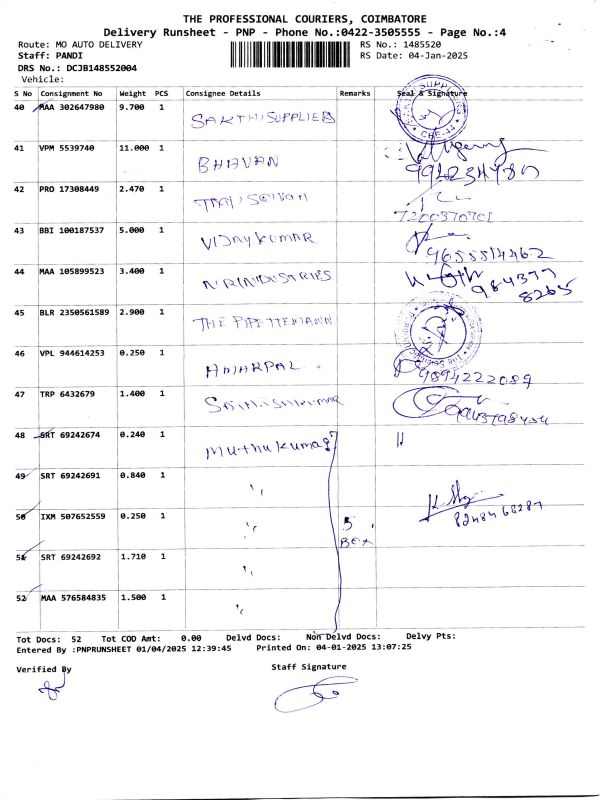 THE PROFESSIONAL COURIERS, COIMBATORE
Delivery Runsheet - PNP - Phone No.:0422-3505555 - Page No.:4
Route: MO AUTO DELIVERY RS No.: 1485520
Staff: PANDI RS Date: 04-Jan-2025
DRS No.: DCJB148552004
Vehicle:
S No Consignment No Weight PCS Consignee Details Remarks Seal & Signature
40 MAA 302647980 9.700 1 SAKTHI SUPPLIERS
41 VPM 5539740 11.000 1 BHAVAN
42 PRO 17308449 2.470 1 7200370701
43 BBI 100187537 5.000 1 VIJAY KUMAR 9655514462
44 MAA 105899523 3.400 1 N R INDUSTRIES 984377
8265
45 BLR 2350561589 2.900 1 THE
46 VPL 944614253 0.250 1 9894222089
47 TRP 6432679 1.400 1
48 SRT 69242674 0.240 1 Muthukumar
49 SRT 69242691 0.840 1 "
50 IXM 507652559 0.250 1 " 5 8248468287
BOX
51 SRT 69242692 1.710 1 "
52 MAA 576584835 1.500 1 "
Tot Docs: 52 Tot COD Amt: 0.00 Delvd Docs: Non Delvd Docs: Delvy Pts:
Entered By :PNPRUNSHEET 01/04/2025 12:39:45 Printed On: 04-01-2025 13:07:25
Verified By Staff Signature